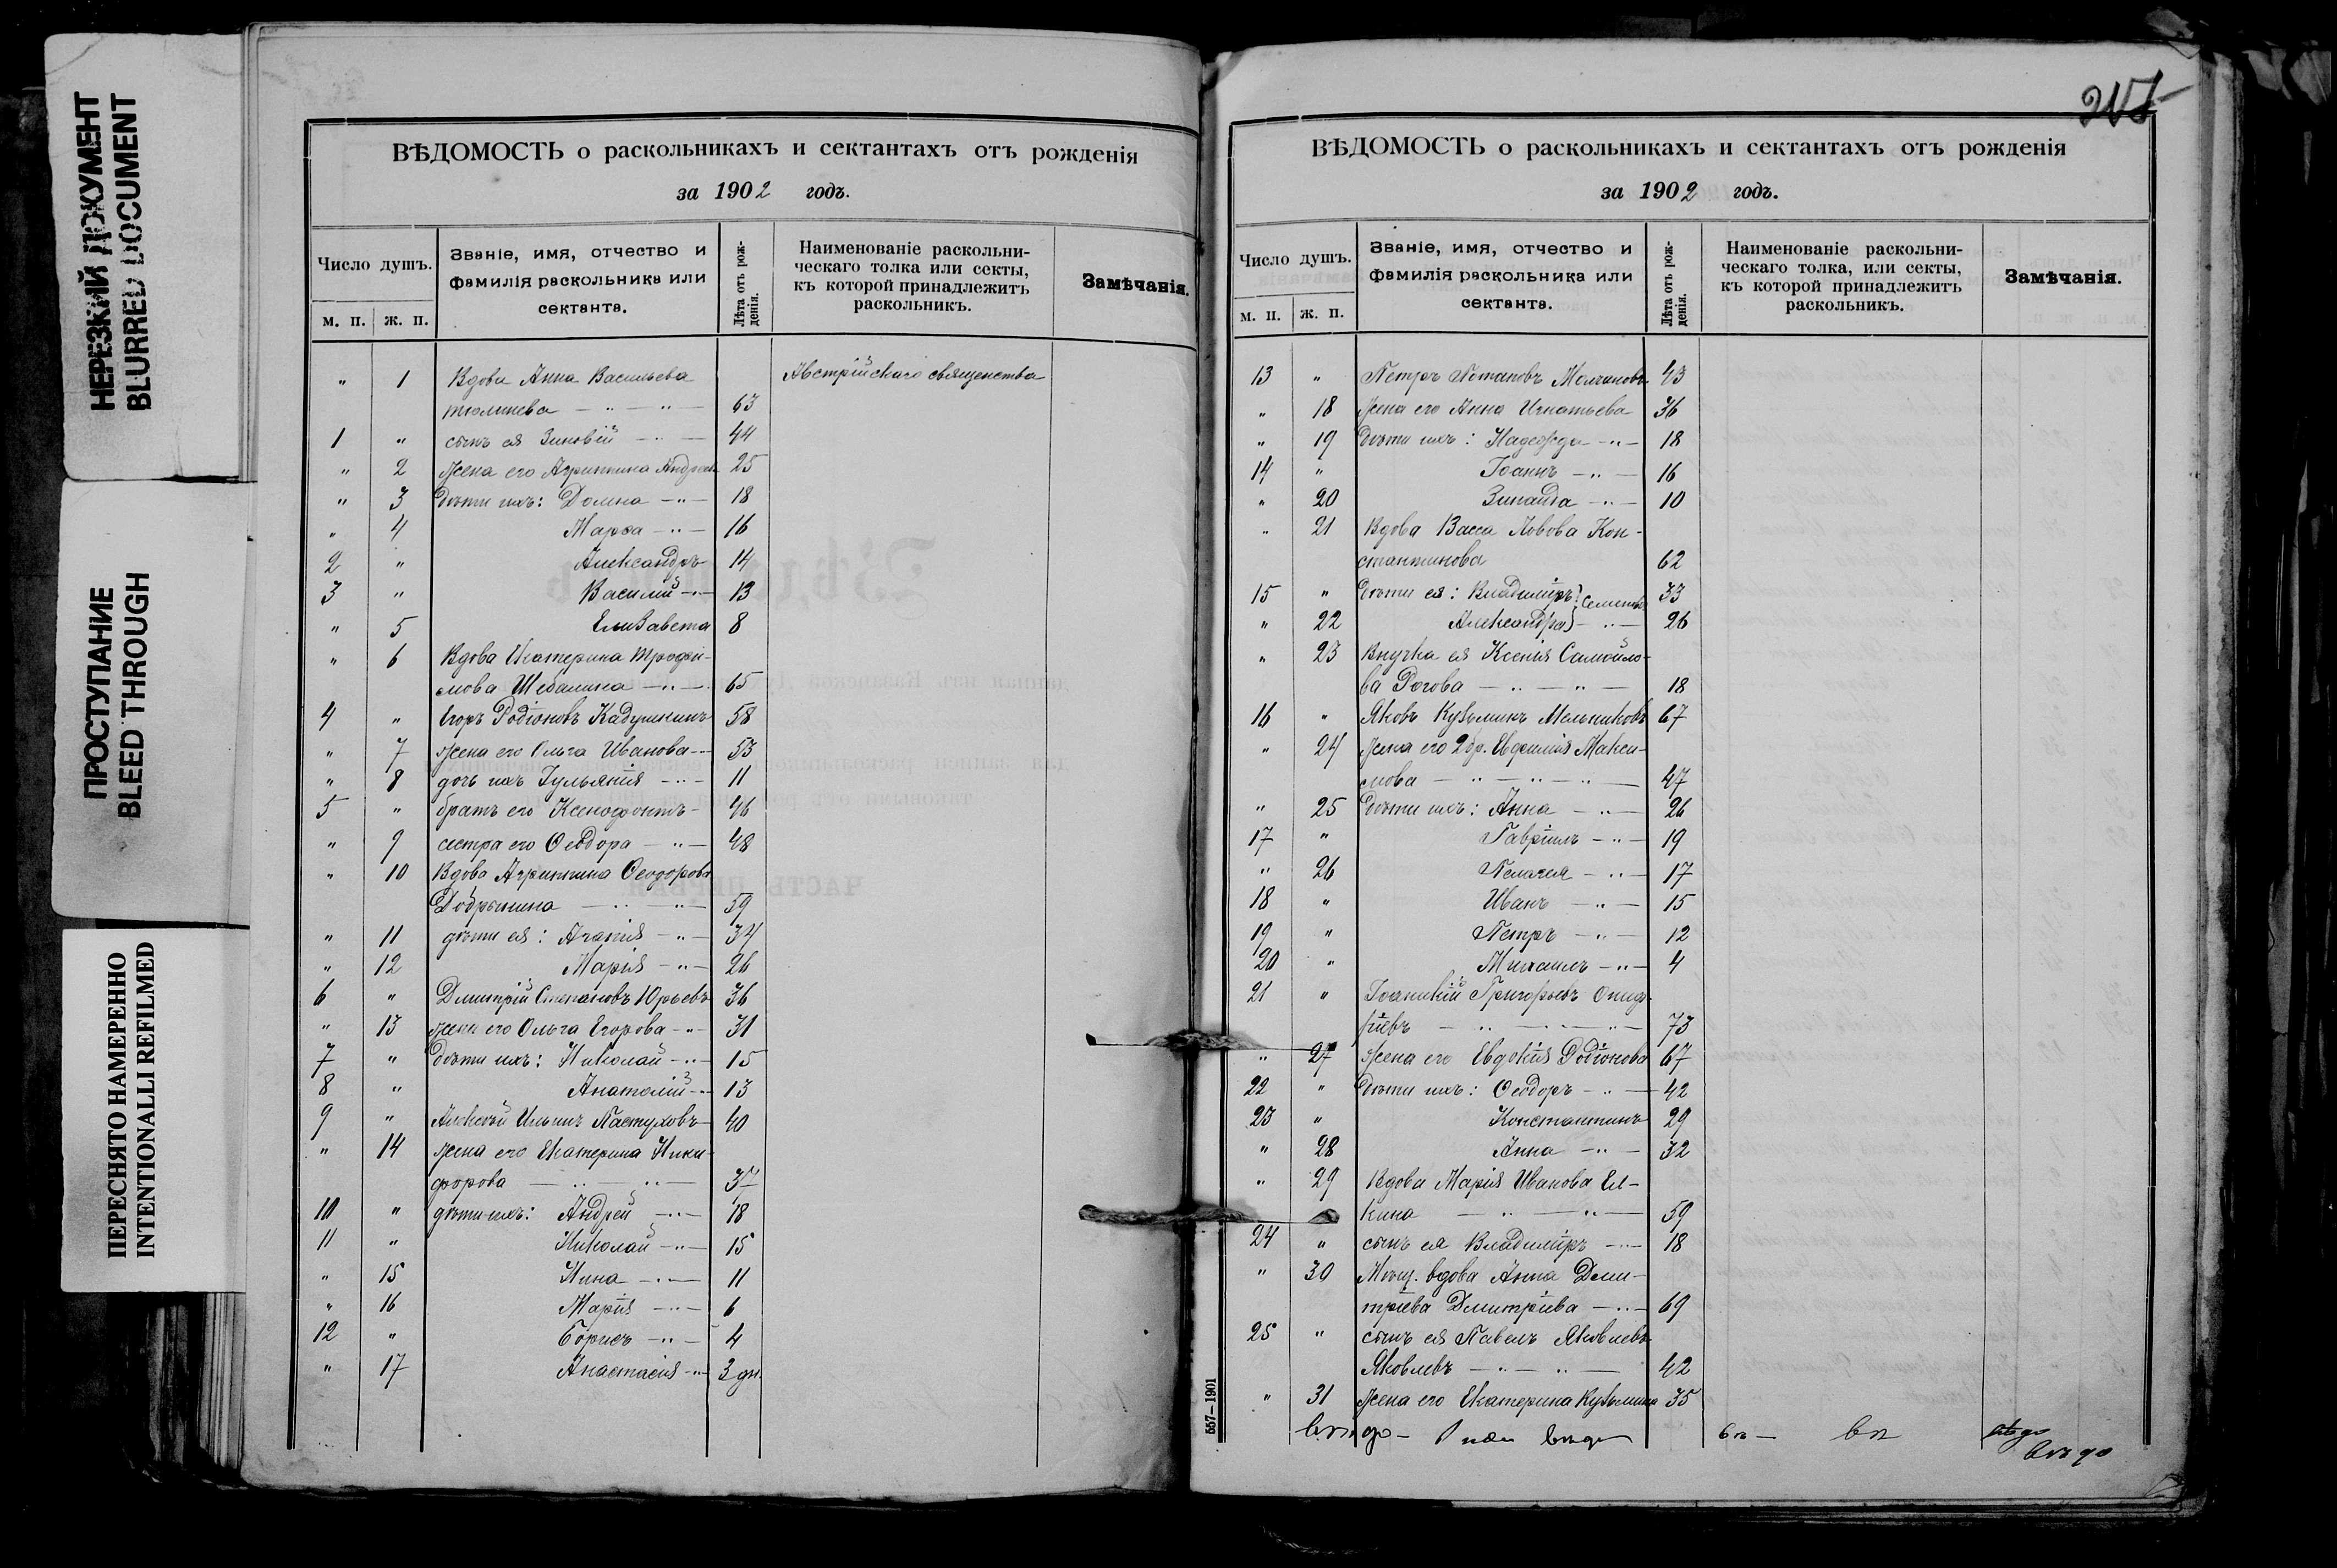 НЕРЕЗКИЙ ДОКУМЕНТ
BLURRED DOCUMENT
ПРОСТУПАНИЕ
BLEED THROUGH
ПЕРЕСНЯТО НАМЕРЕННО
INTENTIONALLI REFILMED
ВѢДОМОСТЬ о раскольникахъ и сектантахъ отъ рожденія
за 1902 годъ.
Число душъ.
м. п. ж. п.
Званіе, имя, отчество и
фамилія раскольника или
сектанта.
Лѣта отъ рож-
денія.
Наименованіе раскольни-
ческаго толка или секты,
къ которой принадлежитъ
раскольникъ.
Замѣчанія.
" 1 Вдова Анна Васильева Австрійскаго священства
63
1 " сынъ ея Зиновій 44
" 2 жена его Агриппина Андреев 25
" 3 Дѣти ихъ: Домна 18
" 4 Марѳа 16
2 " Александръ 14
3 " Василій 13
" 5 Елизавета 8
" 6 Вдова Екатерина Трофи-
мова Шебалина 65
4 " Егоръ Родіоновъ Кадушкинъ 58
" 7 жена его Ольга Иванова 53
" 8 дочь ихъ Іульянія 11
5 " братъ его Ксенофонтъ 46
" 9 сестра его Ѳеодора 48
" 10 Вдова Агриппина Ѳеодорова
Добрынина 59
" 11 дѣти ея: Агапія 34
" 12 Марія 26
6 " Димитрій Степановъ Юрьевъ 36
" 13 жена его Ольга Егорова 31
7 " Дѣти ихъ: Николай 15
8 " Анатолій 13
9 " Алексѣй Ильинъ Пастуховъ 40
" 14 жена его Екатерина Ники-
форова 37
10 " дѣти ихъ: Андрей 18
11 " Николай 15
" 15 Нина 11
" 16 Марія 6
12 " Борисъ 4
" 17 Анастасія 3 дн.
ВѢДОМОСТЬ о раскольникахъ и сектантахъ отъ рожденія
за 1902 годъ.
Число душъ.
м. п. ж. п.
Званіе, имя, отчество и
фамилія раскольника или
сектанта.
Лѣта отъ рож-
денія.
Наименованіе раскольни-
ческаго толка, или секты,
къ которой принадлежитъ
раскольникъ.
Замѣчанія.
13 " Петръ Молчановъ 43
" 18 жена его Анна Игнатьева 36
" 19 Дѣти ихъ: Надежда 18
14 " Іоаннъ 16
" 20 Зинаида 10
" 21 Вдова Васса Львова Кон-
стантинова 62
15 " Дѣти ея: Владиміръ 33
" 22 Александра 26
" 23 Внучка ея Ксенія Самойло-
ва Рогова 18
16 " Яковъ Кузьминъ Мельниковъ 67
" 24 жена его 2 бр. Евфимія Макси-
мова 47
" 25 Дѣти ихъ: Анна 26
17 " Гавріилъ 19
" 26 Пелагея 17
18 " Иванъ 15
19 " Петръ 12
20 " Михаилъ 4
21 " Іоанникій Григорьевъ
73
" 27 жена его Евдокія Родіонова 67
22 " Дѣти ихъ: Ѳеодоръ 42
23 " Константинъ 29
" 28 Анна 32
" 29 Вдова Марія Иванова Ел-
кина 59
24 " сынъ ея Владиміръ 18
" 30 Мѣщ. вдова Анна Дми-
тріева Димитріева 69
25 " сынъ ея Павелъ Яковлевъ
Яковлевъ 42
" 31 жена его Екатерина Кузьмина 35
557—1901